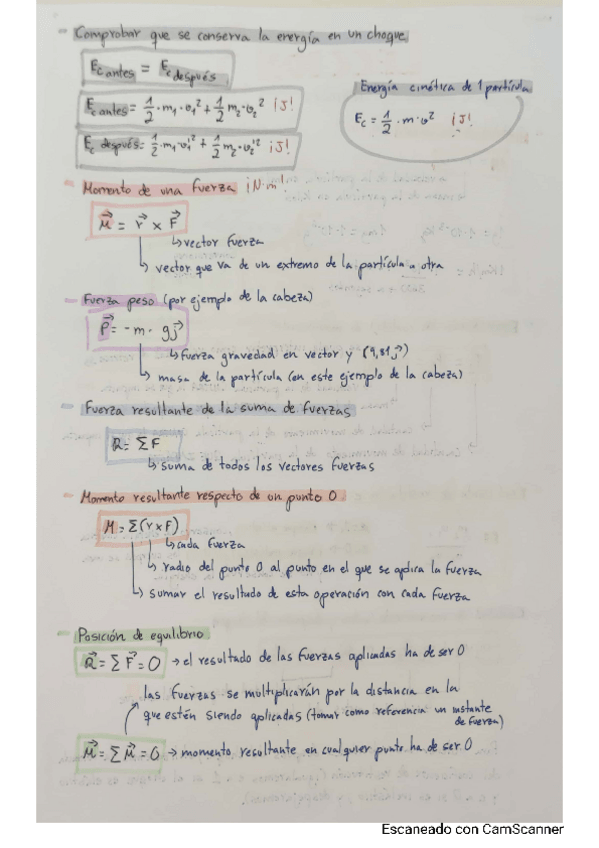 - Comprobar que se conserva la energía en un choque
Ec antes = Ec después
Ec antes = 1/2 · m₁ · v₁² + 1/2 m₂ · v₂² ¡J!
Ec después = 1/2 · m₁ · v₁'² + 1/2 m₂ · v₂'² ¡J!
Energía cinética de 1 partícula
Ec = 1/2 · m · v² ¡J!
- Momento de una fuerza ¡N·m!
M⃗ = r⃗ x F⃗
↳ vector fuerza
↳ vector que va de un extremo de la partícula a otra
- Fuerza peso (por ejemplo de la cabeza)
P⃗ = -m · gj⃗
↳ fuerza gravedad en vector y (9,81j⃗)
↳ masa de la partícula (en este ejemplo de la cabeza)
- Fuerza resultante de la suma de fuerzas
R = ΣF
↳ suma de todos los vectores fuerzas
- Momento resultante respecto de un punto O
M = Σ(r x F)
↳ cada fuerza
↳ radio del punto O al punto en el que se aplica la fuerza
↳ sumar el resultado de esta operación con cada fuerza
- Posición de equilibrio
R⃗ = Σ F⃗ = 0 → el resultado de las fuerzas aplicadas ha de ser 0
las fuerzas se multiplicarán por la distancia en la
que estén siendo aplicadas (tomar como referencia un instante
de fuerza)
M⃗ = Σ M⃗ = 0 → momento resultante en cualquier punto ha de ser 0
Escaneado con CamScanner